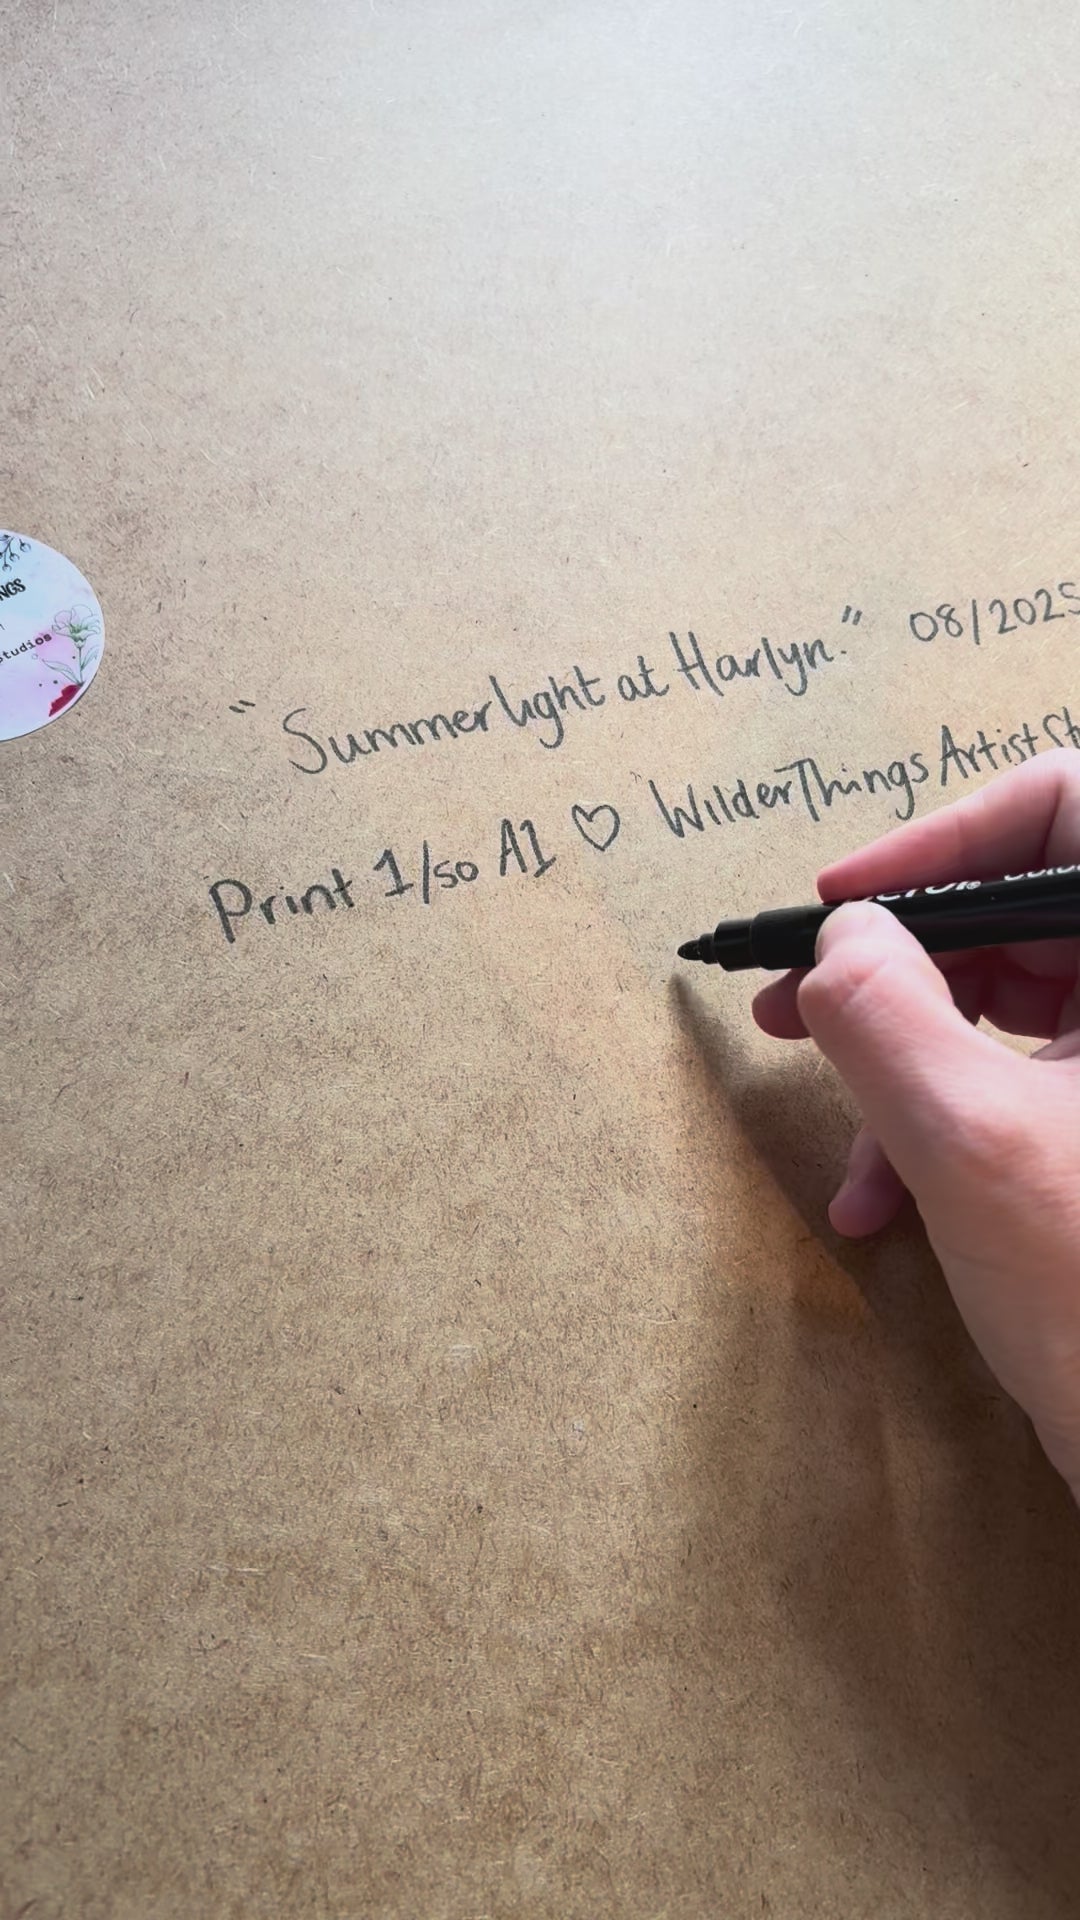 "Summer light at Harlyn." 08/2025
Print 1/50 A1 ♡ WilderThings Artist St
NGS
studios